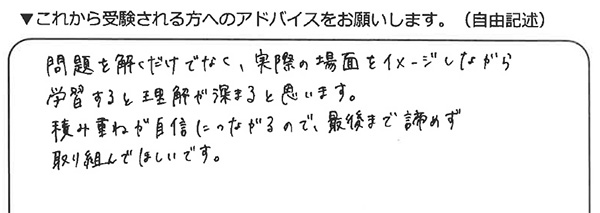 ▼これから受験される方へのアドバイスをお願いします。（自由記述）
問題を解くだけでなく、実際の場面をイメージしながら
学習すると理解が深まると思います。
積み重ねが自信につながるので、最後まで諦めず
取り組んでほしいです。